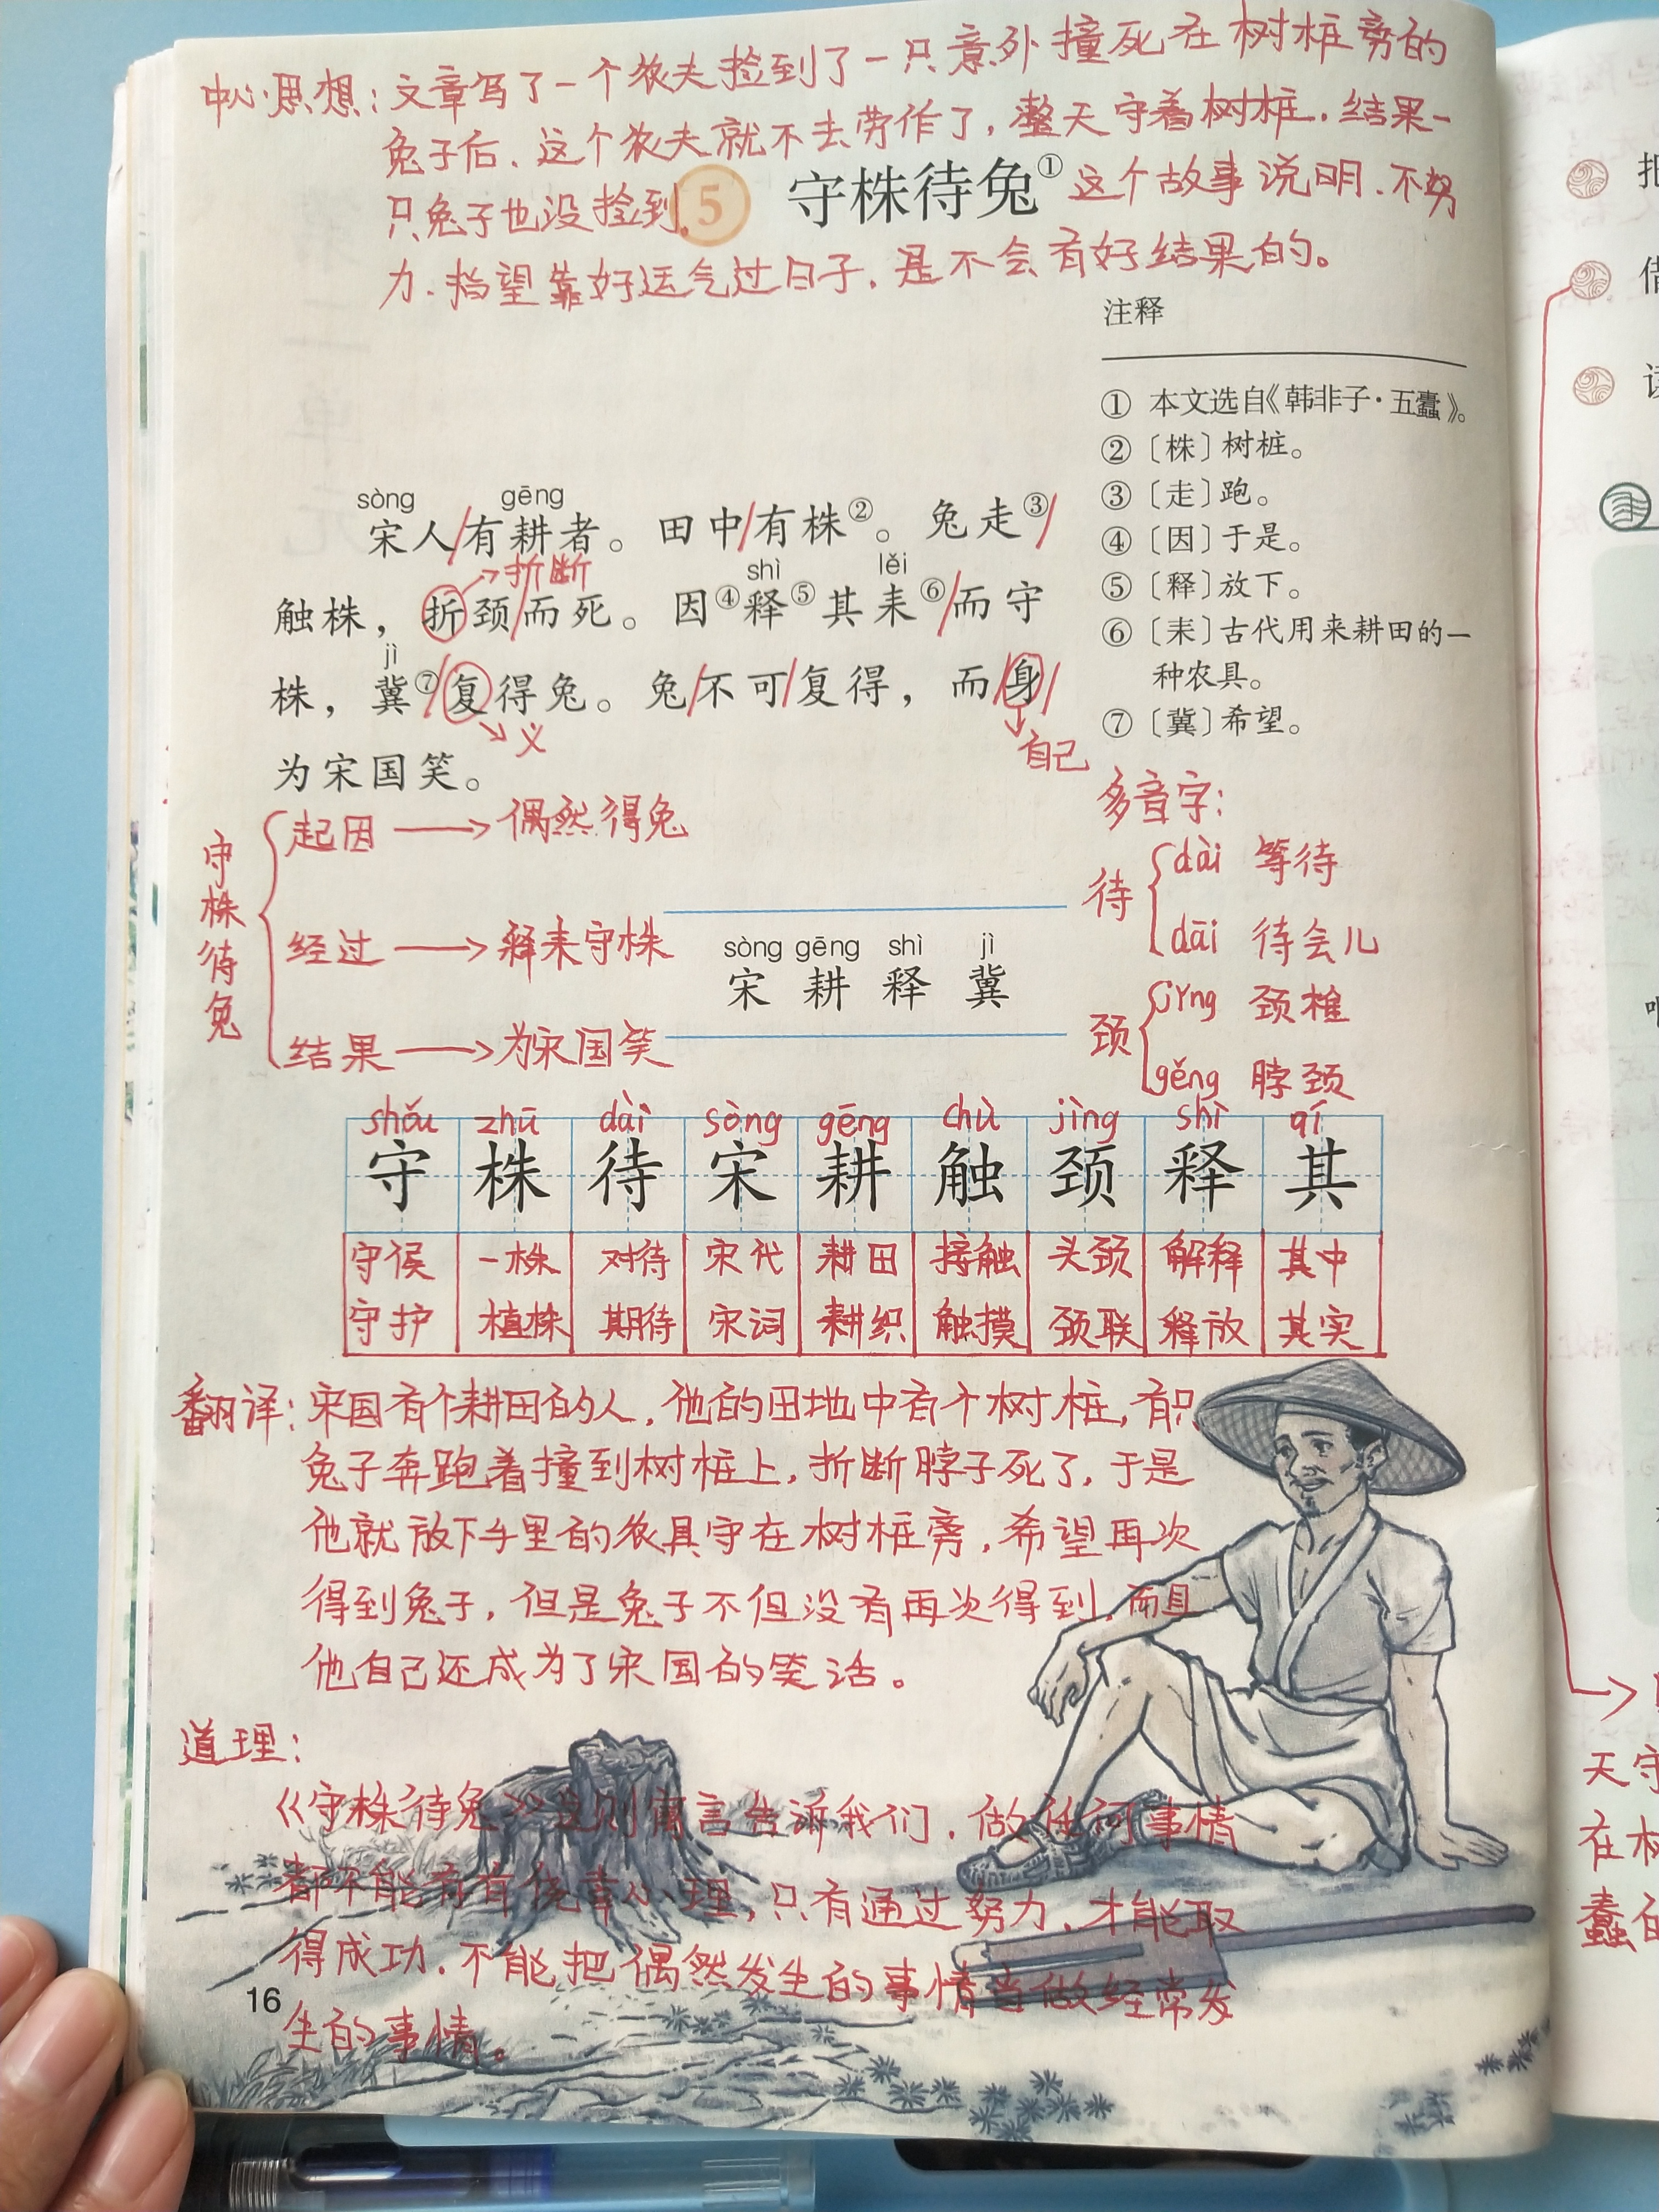 中心思想：文章写了一个农夫捡到了一只意外撞死在树桩旁的
兔子后、这个农夫就不去劳作了，整天守着树桩．结果一
只兔子也没捡到。
5 守株待兔①
这个故事说明．不努
力．指望靠好运气过日子．是不会有好结果的。
注释
① 本文选自《韩非子·五蠹》。
②〔株〕树桩。
③〔走〕跑。
④〔因〕于是。
⑤〔释〕放下。
⑥〔耒〕古代用来耕田的一
种农具。
⑦〔冀〕希望。
sòng gēng
宋人/有耕者。田中/有株②。兔走③/
折断
shì lěi
触株，折颈/而死。因④释⑤其耒⑥/而守
jì
株，冀⑦/复得兔。兔/不可/复得，而/身/
又
自己
为宋国笑。
守株待兔
起因 偶然得兔
经过 释耒守株
结果 为宋国笑
sòng gēng shì jì
宋 耕 释 冀
多音字：
待
dài 等待
dāi 待会儿
颈
jǐng 颈椎
gěng 脖颈
shǒu zhū dài sòng gēng chù jǐng shì qí
守 株 待 宋 耕 触 颈 释 其
守侯 一株 对待 宋代 耕田 接触 头颈 解释 其中
守护 植株 期待 宋词 耕织 触摸 颈联 释放 其实
翻译：宋国有个耕田的人，他的田地中有个树桩，有只
兔子奔跑着撞到树桩上，折断脖子死了，于是
他就放下手里的农具守在树桩旁，希望再次
得到兔子，但是兔子不但没有再次得到，而且
他自己还成为了宋国的笑话。
道理：
《守株待兔》这则寓言告诉我们．做任何事情
都不能抱有侥幸心理，只有通过努力．才能取
得成功．不能把偶然发生的事情当做经常发
生的事情。
16
天守
蠹的